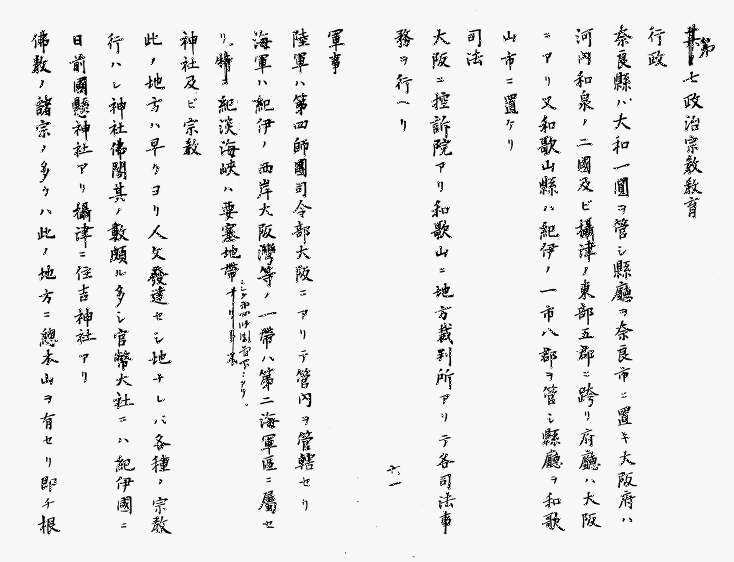 第七政治宗教教育
行政
奈良縣ハ大和一圓ヲ管シ縣廳ヲ奈良市ニ置キ大阪府ハ
河內和泉ノ二國及ビ攝津ノ東部五郡ニ跨リ府廳ハ大阪
ニアリ又和歌山縣ハ紀伊ノ一市八郡ヲ管シ縣廳ヲ和歌
山市ニ置ケリ
司法
大阪ニ控訴院アリ和歌山ニ地方裁判所アリテ各司法事
務ヲ行ヘリ
六一
軍事
陸軍ハ第四師團司令部大阪ニアリテ管內ヲ管轄セリ
海軍ハ紀伊ノ西岸大阪灣等ノ一帶ハ第二海軍區ニ屬セ
リ特ニ紀淡海峽ハ要塞地帶
神社及ビ宗教
此ノ地方ハ早クヨリ人文發達セシ地ナレバ各種ノ宗教
行ハレ神社佛閣其ノ數頗ル多シ官幣大社ニハ紀伊國ニ
日前國懸神社アリ攝津ニ住吉神社アリ
佛教ノ諸宗ノ多クハ此ノ地方ニ總本山ヲ有セリ卽チ根